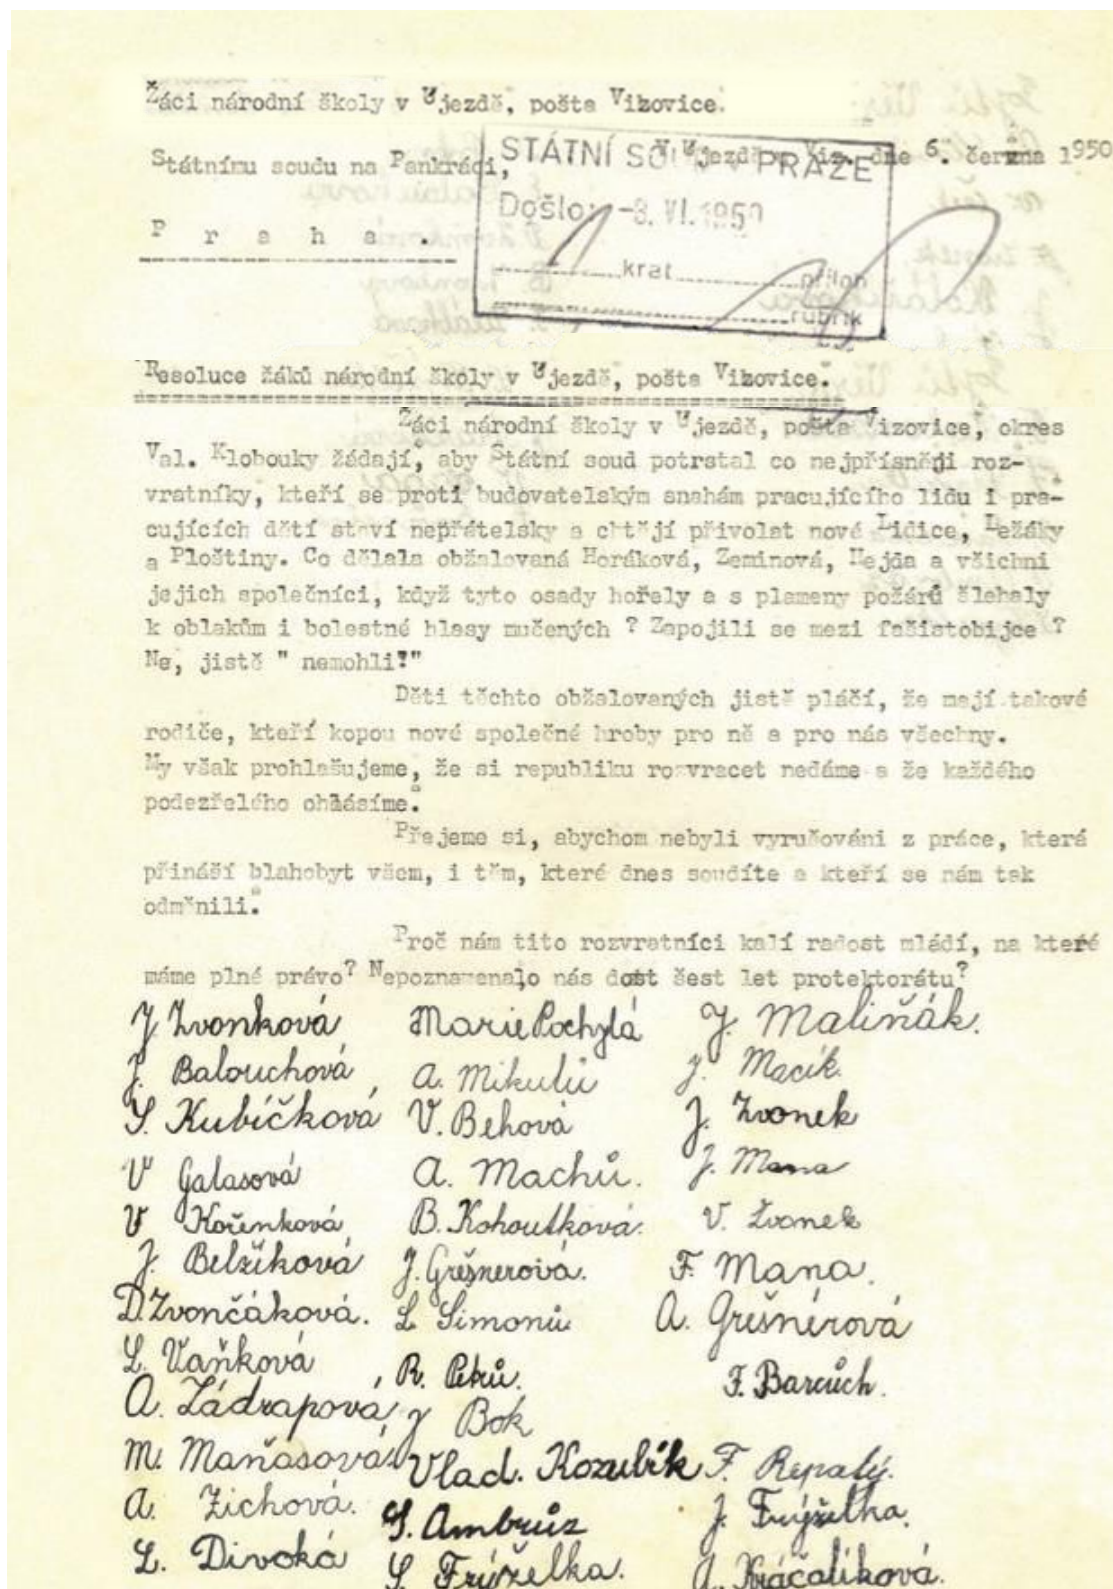 Žáci národní školy v Újezdě, pošta Vizovice.
Státnímu soudu na Pankráci,
V Újezdě u Viz. dne 6. června 1950
STÁTNÍ SOUD V PRAZE
Došlo: -8. VI. 1950
P r a h a .
krat příloh
rubrik
Resoluce žáků národní školy v Újezdě, pošta Vizovice.
Žáci národní školy v Újezdě, pošta Vizovice, okres
Val. Klobouky žádají, aby Státní soud potrstal co nejpřísněji roz-
vratníky, kteří se proti budovatelským snahám pracujícího lidu i pra-
cujících dětí staví nepřátelsky a chtějí přivolat nové Lidice, Ležáky
a Ploštiny. Co dělala obžalovaná Horáková, Zeminová, Hejda a všichni
jejich společníci, když tyto osady hořely a s plameny požárů šlehaly
k oblakům i bolestné hlasy mučených ? Zapojili se mezi fašistobijce ?
Ne, jistě " nemohli!"
Děti těchto obžalovaných jistě pláčí, že mají takové
rodiče, kteří kopou nové společné hroby pro ně a pro nás všechny.
My však prohlašujeme, že si republiku rozvracet nedáme a že každého
podezřelého ohlásíme.
Přejeme si, abychom nebyli vyrušováni z práce, která
přináší blahobyt všem, i těm, které dnes soudíte a kteří se nám tak
odměnili.
Proč nám tito rozvratníci kalí radost mládí, na které
máme plné právo? Nepoznamenalo nás dost šest let protektorátu?
J. Zvonková Marie Pochylá J. Maliňák.
J. Balouchová A. Mikulů J. Macík.
S. Kubíčková V. Behová J. Zvonek
V Galasová A. Machů. J. Mana
V Kořenková B. Kohoutková. V. Zvonek
J. Belžíková J. Gréšnerová. F. Mana.
D. Zvončáková. L. Šimonů A. Grešnérová
L. Vaňková R. Petrů. F. Barcůch.
A. Zádrapová J Bok
M. Maňasová Vlad. Kozubík F. Repatý.
A. Zichová. S. Ambrůz J. Frýželka.
L. Divoká S. Frýželka. A. Kráčalíková.